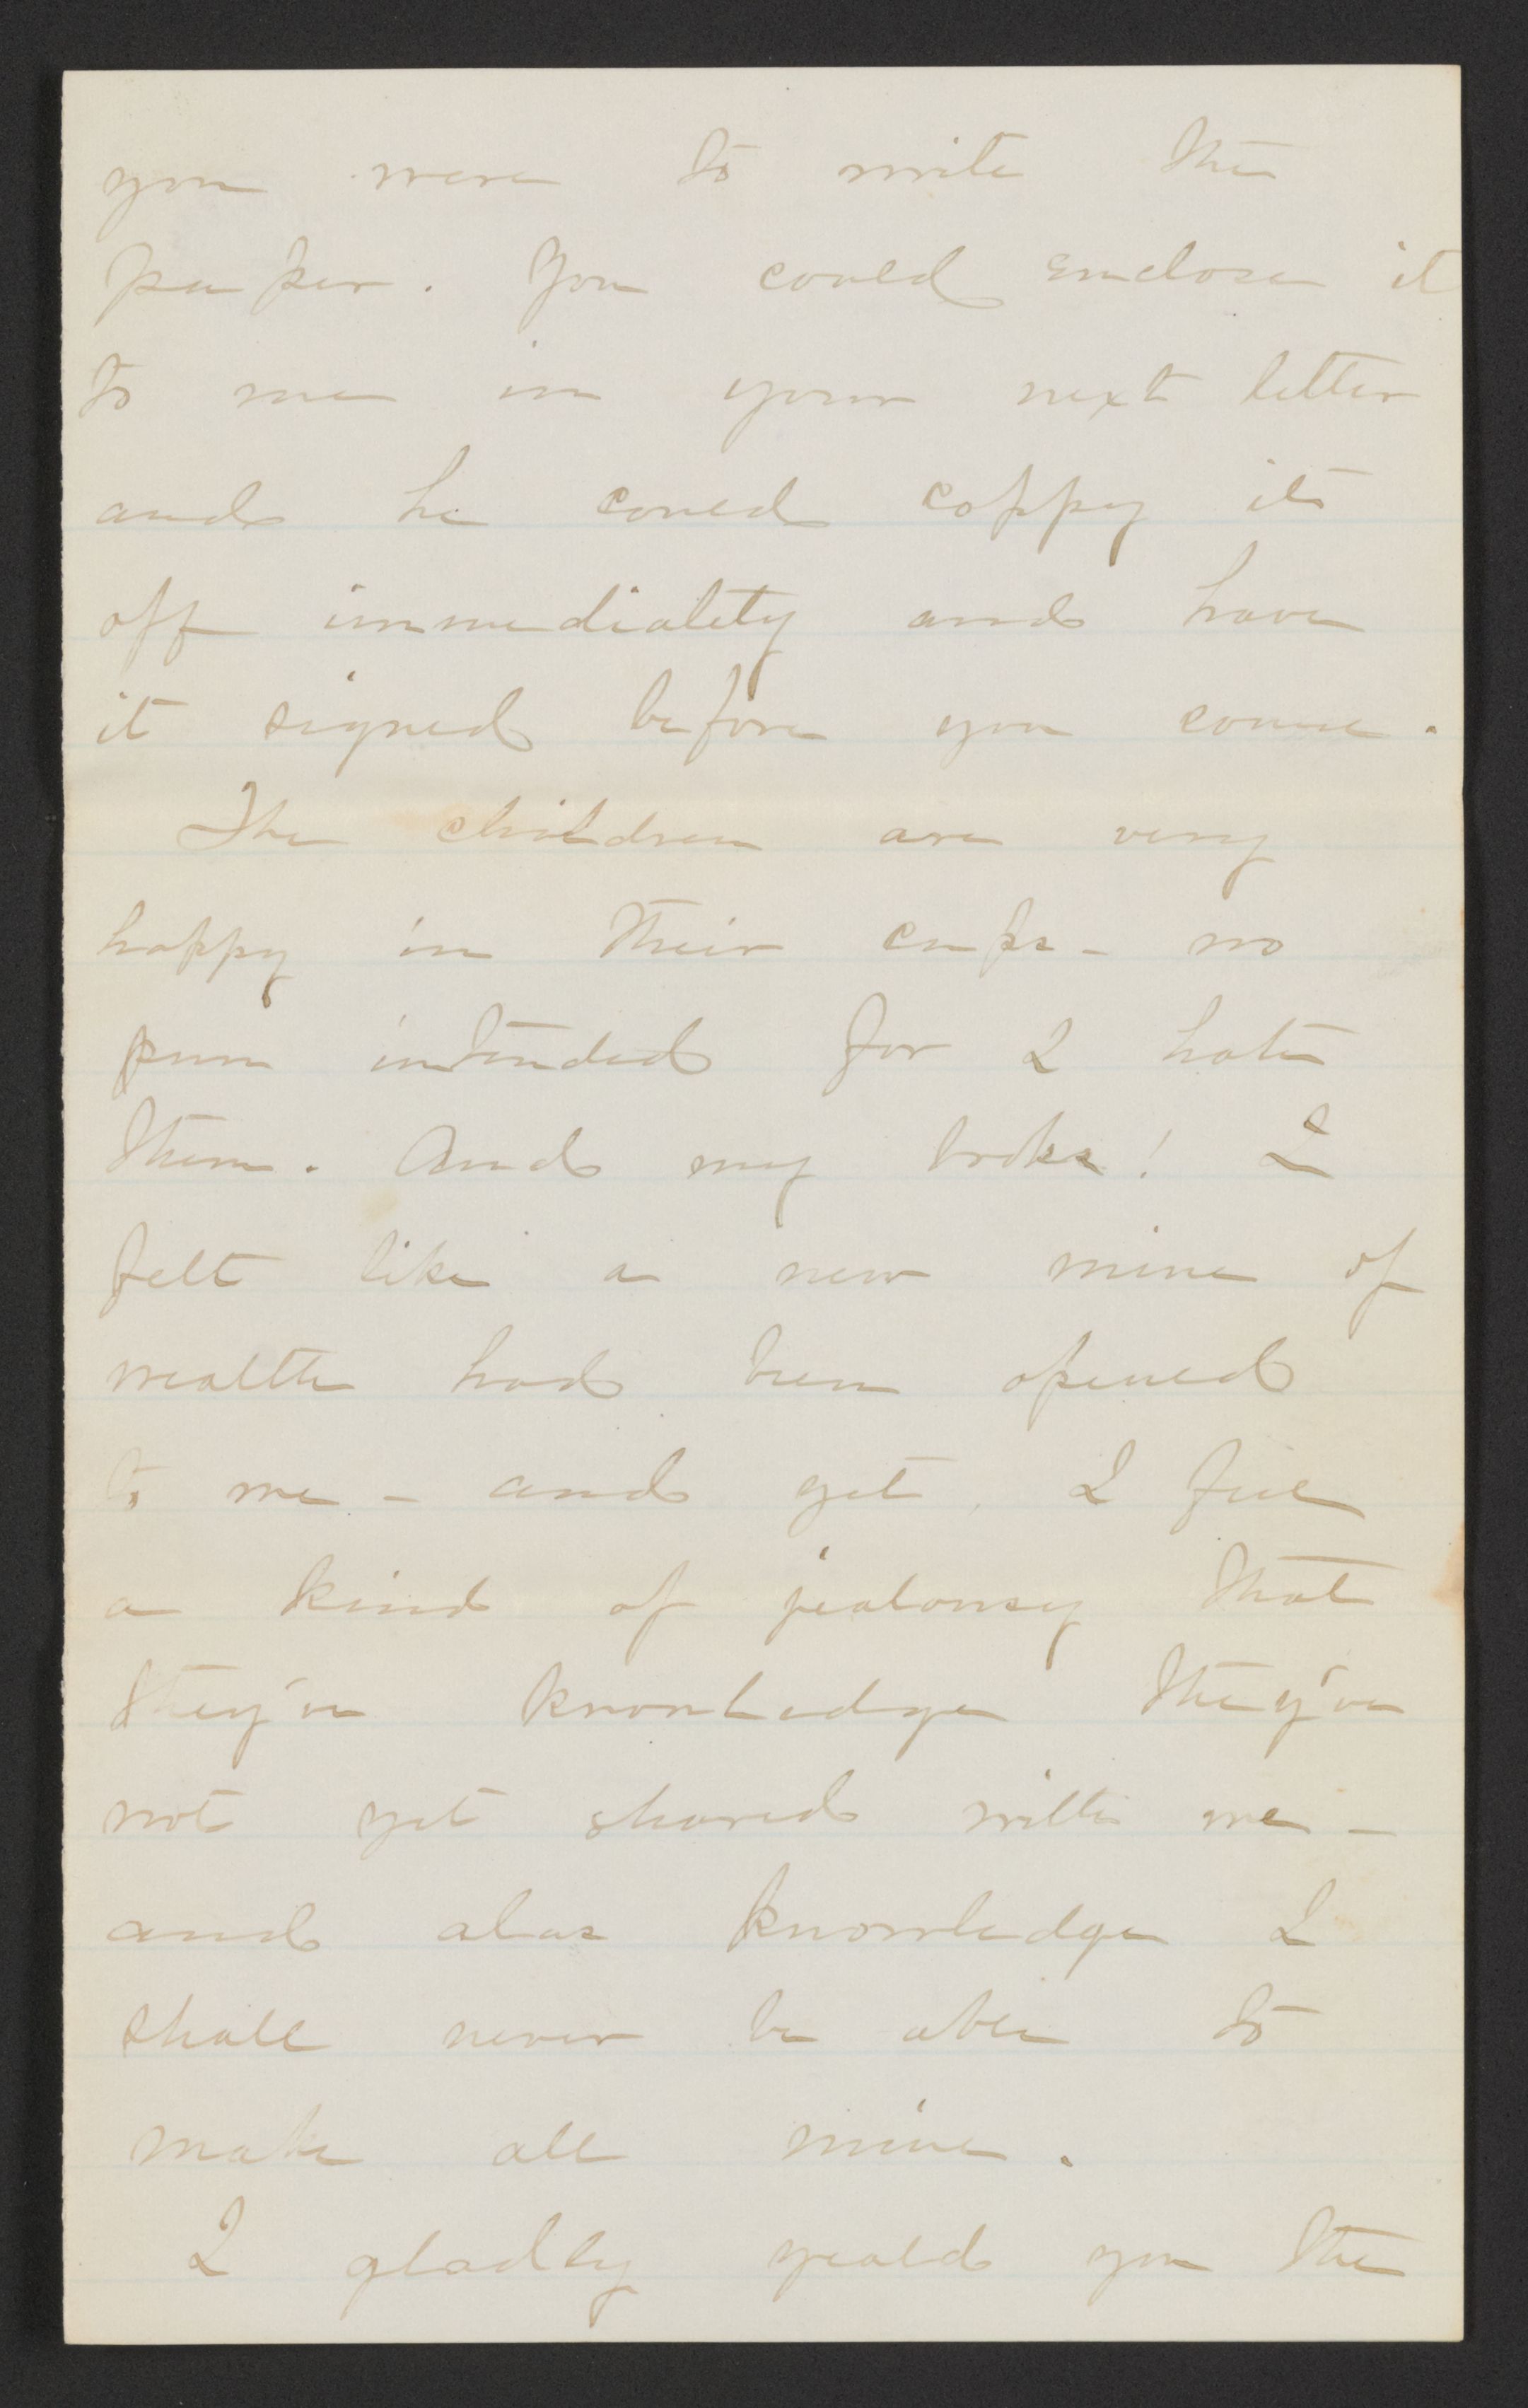 you were to write the
paper. You could enclose it
to me in your next letter
and he could coppy it
off immediatety and have
it signed before you come.
The children are very
happy in their cups - no
pun intended for I hate
them. And my books! I
felt like a new mine of
wealth had been opened
to me - and yet, I feel
a kind of jealousy that
they've knowledge they've
not yet shared with me -
and alas knowledge I
shall never be able to
make all mine.
I gladly yeald you the